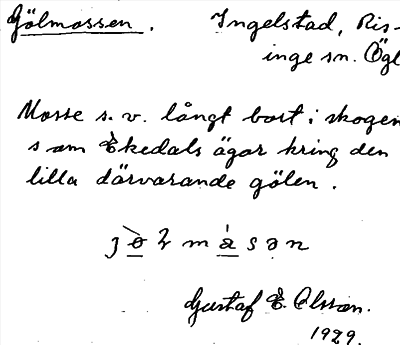 Gölmossen. Ingelstad, Ris-
inge sn. Ögl
Mosse s. v. långt bort i skogen
som Ekedals ägor kring den
lilla därvarande gölen.
Gustaf E. Olsson.
1929.